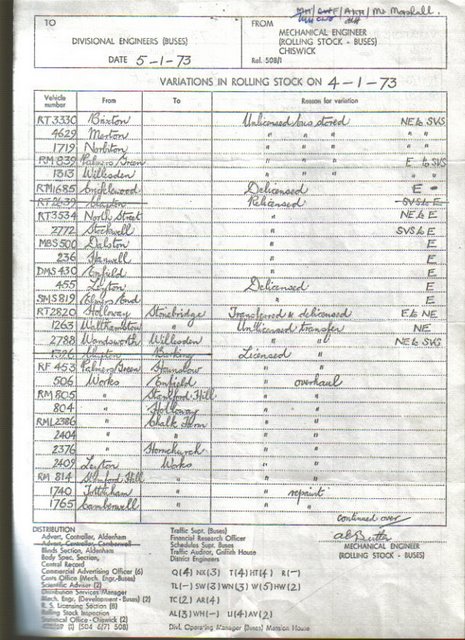 TO
DIVISIONAL ENGINEERS (BUSES)
DATE 5-1-73
FROM
MECHANICAL ENGINEER
(ROLLING STOCK - BUSES)
CHISWICK
Ref. 508/1
Mr Marshall.
VARIATIONS IN ROLLING STOCK ON 4-1-73
Vehicle number From To Reason for variation
RT3330 Brixton Unlicensed bus stored NE to SVS
4629 Merton " " " "
1719 Norbiton " " " "
RM839 Palmers Green " " " E to SVS
1313 Willesden " " " " "
RM1685 Cricklewood Delicensed E
RT2639 Clapton Relicensed SVS to E
RT3534 North Street " NE to E
2772 Stockwell " SVS to E
MBS500 Dalston " E
236 Hanwell " E
DMS430 Enfield " E
455 Leyton Delicensed E
SMS819 Elmers End " E
RT2820 Holloway Stonebridge Transferred & delicensed E to NE
1263 Walthamstow " Unlicensed transfer NE
2788 Wandsworth Willesden " " NE to SVS
1396 Clapton Barking Licensed "
RF453 Palmers Green Hounslow " "
506 Works Enfield " overhaul
RM805 " Stamford Hill " "
804 " Holloway " "
RML2386 " Chalk Farm " "
2404 " " " "
2376 " Hornchurch " "
2409 Leyton Works " "
RM814 Stamford Hill " " "
1740 Tottenham " " repaint
1765 Camberwell " " "
continued over
MECHANICAL ENGINEER
(ROLLING STOCK - BUSES)
DISTRIBUTION
Advert. Controller, Aldenham
Advert. Controller, Camberwell
Blinds Section, Aldenham
Body Spec. Section,
Central Record
Commercial Advertising Officer (6)
Costs Office (Mech. Engr.-Buses)
Scientific Adviser (2)
Distribution Services Manager
Mech. Engr. (Development - Buses) (2)
R. S. Licensing Section (8)
Rolling Stock Inspection
Statistical Office - Chiswick (2)
Traffic Supt. (Buses)
Financial Research Officer
Schedules Supt. Buses
Traffic Auditor, Griffith House
District Engineers
Q(4) NX(3) T(4) HT(4) R(-)
TL(-) SW(3) WN(3) W(5) HW(2)
TC(2) AR(4)
AL(3) WH(-) U(4) AV(2)
Divl. Operating Manager (Buses) Mansion House